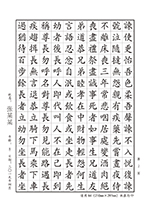 諫使更怡吾色柔吾聲諫不入悅復諫
號泣隨撻無怨親有疾藥先嘗晝夜侍
不離床喪三年常悲咽居處變酒肉絕
喪盡禮祭盡誠事死者如事生兄道友
弟道恭兄弟睦孝在中財物輕怨何生
言語忍忿自泯或飲食或坐走長者先
幼者後長呼人即代叫人不在己即到
稱尊長勿呼名對尊長勿見能路遇長
疾趨揖長無言退恭立騎下馬乘下車
過猶待百步餘長者立幼勿坐長者坐
張某某